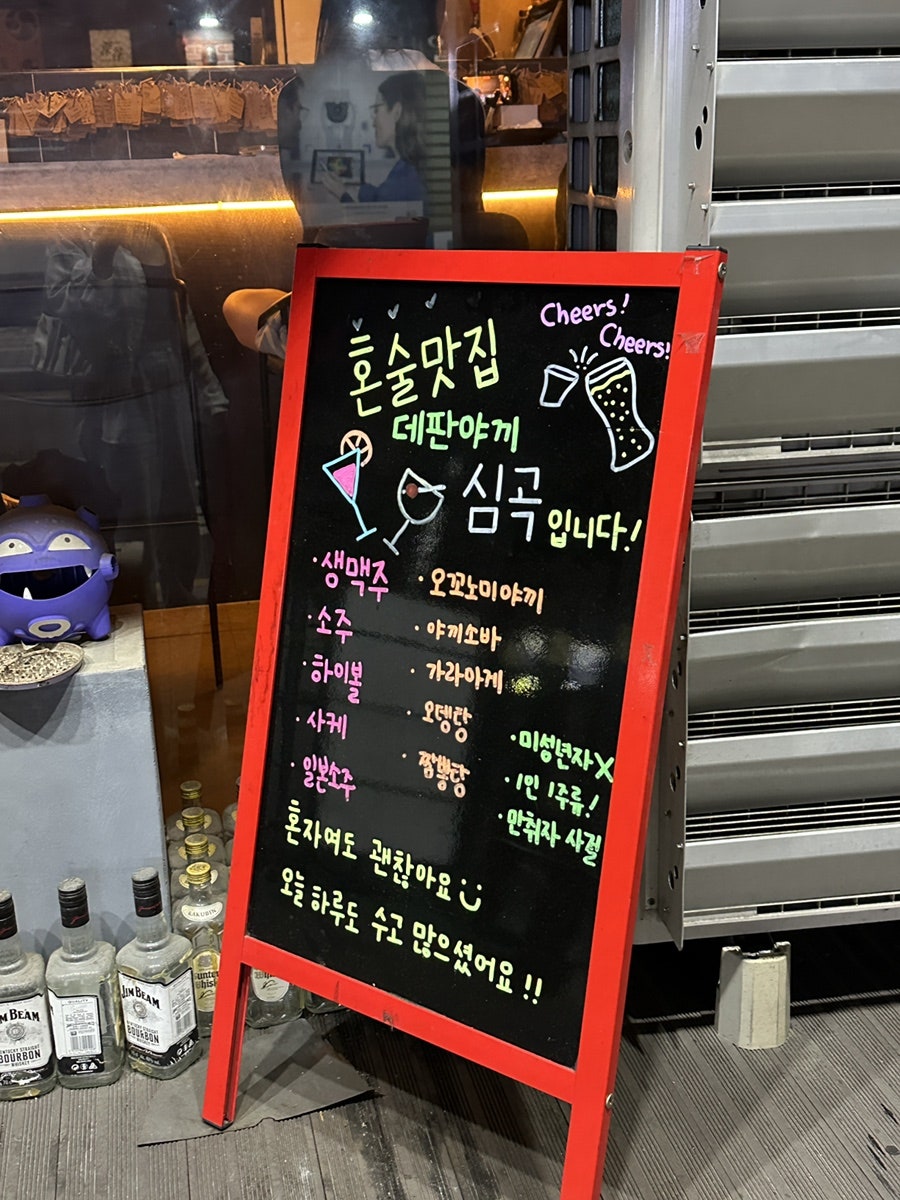 Cheers!
Cheers!
혼술맛집
데판야끼
심곡입니다!
· 생맥주
· 소주
· 하이볼
· 사케
· 일본소주
· 오꼬노미야끼
· 야끼소바
· 가라아게
· 오뎅탕
· 짬뽕탕
· 미성년자 X
· 1인 1주류!
· 만취자 사절
혼자여도 괜찮아요
오늘 하루도 수고 많으셨어요!!
JIM BEAM
KENTUCKY STRAIGHT
BOURBON
WHISKEY
JIM BEAM
BOURBON
KAKUBIN